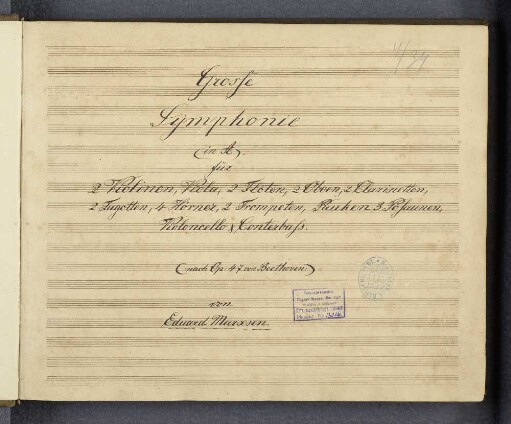 Grosse
Symphonie
(in A)
für
2 Violinen, Viola, 2 Flöten, 2 Oboen, 2 Clarinetten,
2 Fagotten, 4 Hörner, 2 Trompeten, Pauken 3 Posaunen,
Violoncello & Contrebass.
(nach Op. 47 von Beethoven)
von
Eduard Marxsen.